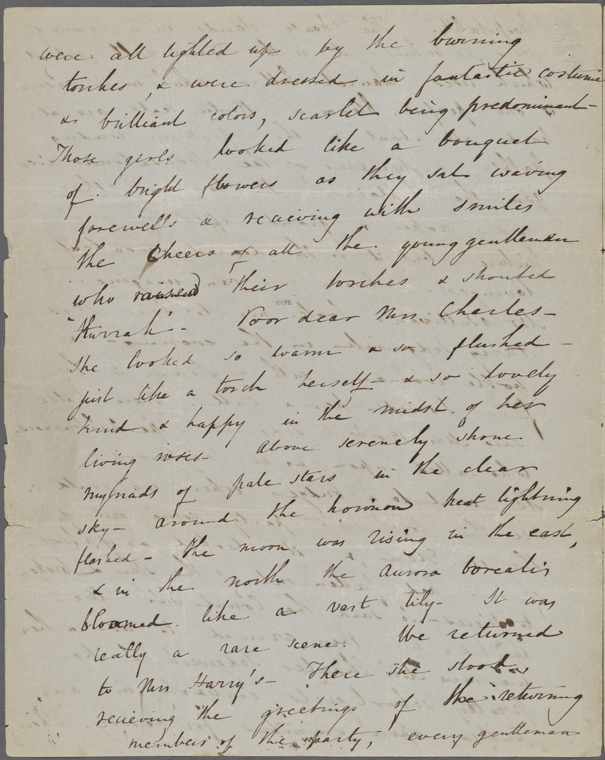 were all lighted up by the burning
torches, & were dressed in fantastic costume
& brilliant colors, scarlet being predominant-
Those girls looked like a bouquet
of bright flowers as they sat waving
farewells & recieving with smiles
the Cheers of all the young gentlemen
who raised their torches & shouted
"Hurrah"- Poor dear Mrs. Charles-
She looked so warm & so flushed-
just like a torch herself- & so lovely
kind & happy in the midst of her
living roses- Above serenely shone
myriads of pale stars in the clear
sky- around the horizon heat lightning
flashed- the moon was rising in the east,
& in the north the aurora borealis
bloomed like a vast lily- It was
really a rare scene. We returned
to Mrs Harry's- There she stood
recieving the greetings of the returning
members of the party, every gentleman